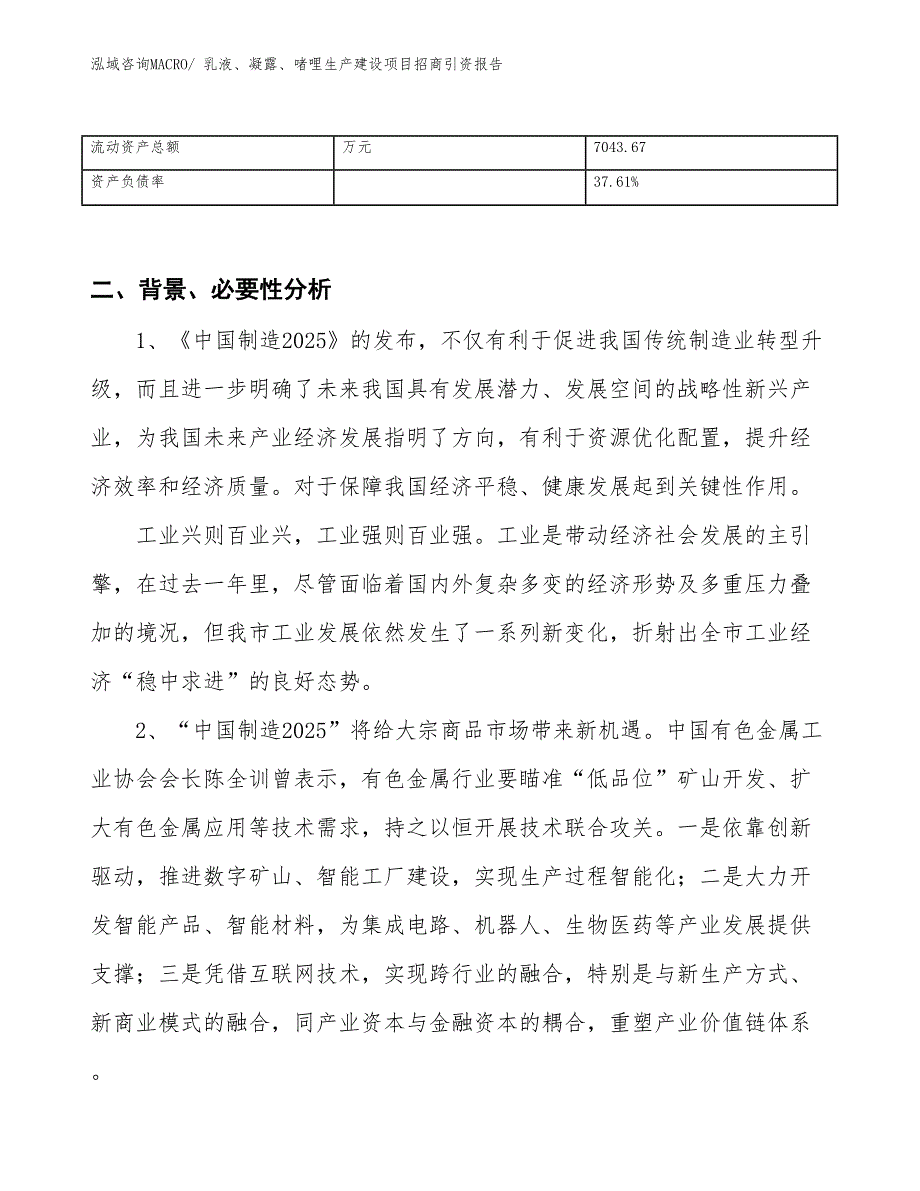 泓域咨询MACRO/ 乳液、凝露、啫哩生产建设项目招商引资报告
流动资产总额 万元 7043.67
资产负债率 37.61%
二、背景、必要性分析
1、《中国制造2025》的发布，不仅有利于促进我国传统制造业转型升
级，而且进一步明确了未来我国具有发展潜力、发展空间的战略性新兴产
业，为我国未来产业经济发展指明了方向，有利于资源优化配置，提升经
济效率和经济质量。对于保障我国经济平稳、健康发展起到关键性作用。
工业兴则百业兴，工业强则百业强。工业是带动经济社会发展的主引
擎，在过去一年里，尽管面临着国内外复杂多变的经济形势及多重压力叠
加的境况，但我市工业发展依然发生了一系列新变化，折射出全市工业经
济“稳中求进”的良好态势。
2、“中国制造2025”将给大宗商品市场带来新机遇。中国有色金属工
业协会会长陈全训曾表示，有色金属行业要瞄准“低品位”矿山开发、扩
大有色金属应用等技术需求，持之以恒开展技术联合攻关。一是依靠创新
驱动，推进数字矿山、智能工厂建设，实现生产过程智能化；二是大力开
发智能产品、智能材料，为集成电路、机器人、生物医药等产业发展提供
支撑；三是凭借互联网技术，实现跨行业的融合，特别是与新生产方式、
新商业模式的融合，同产业资本与金融资本的耦合，重塑产业价值链体系
。